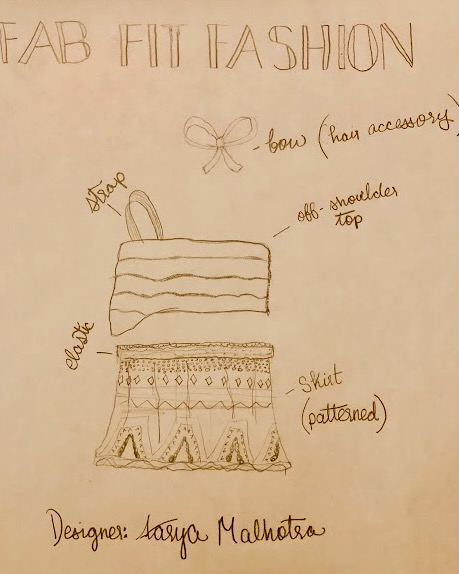 FAB FIT FASHION
bow (hair accessory)
strap
off-shoulder
top
elastic
skirt
(patterned)
Designer: Aarya Malhotra